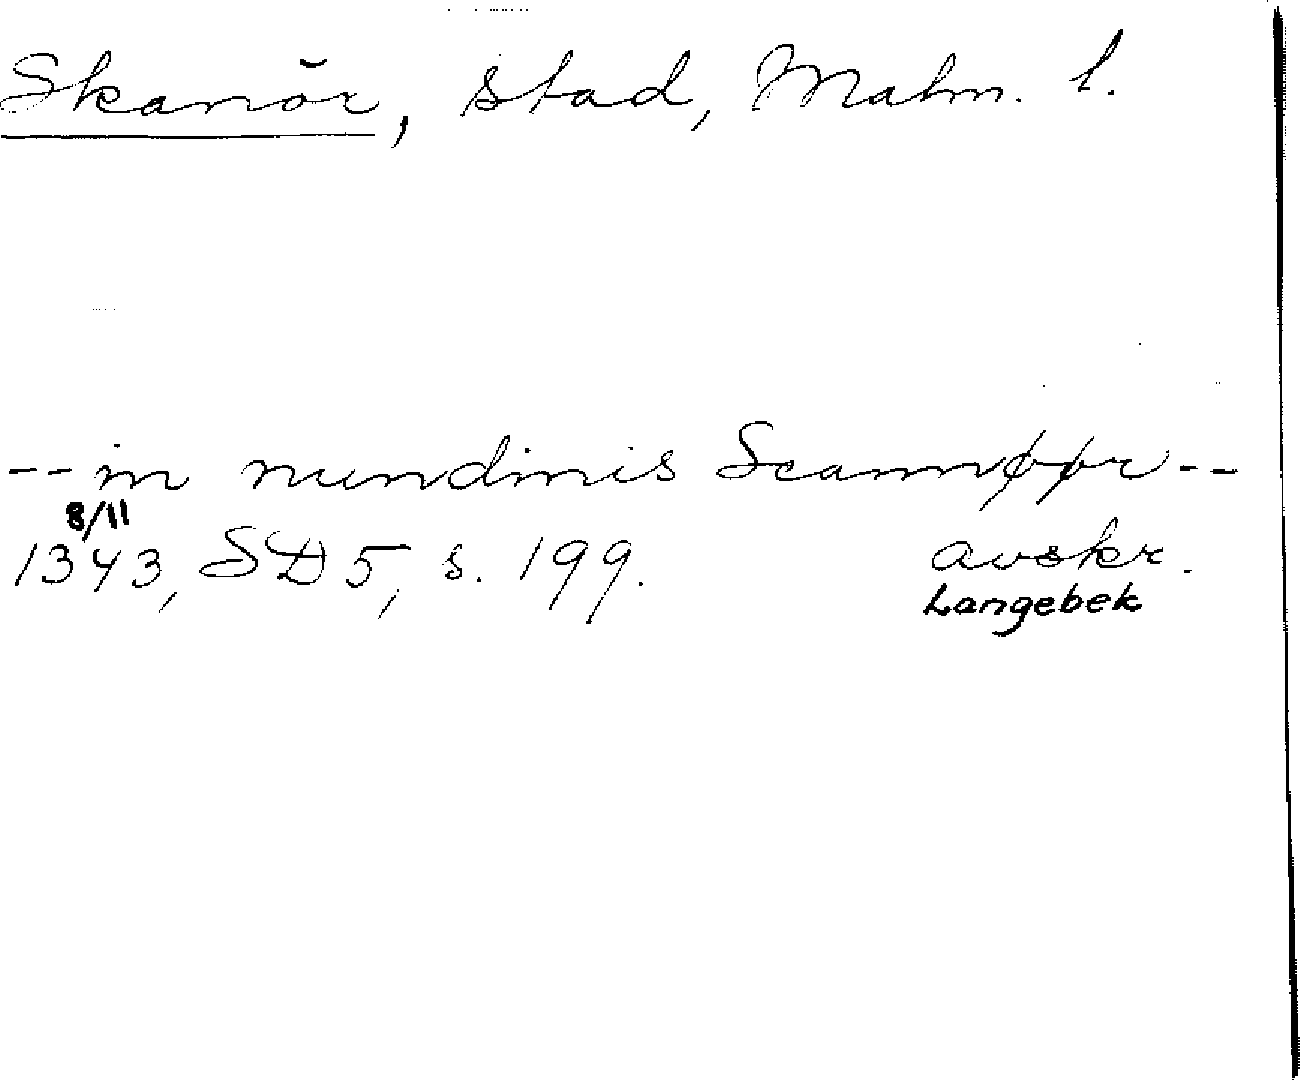 Skanör, stad, Malm. l.
--in nundinis Scannøør--
8/11
1343, SD 5, s. 199. avskr.
Langebek